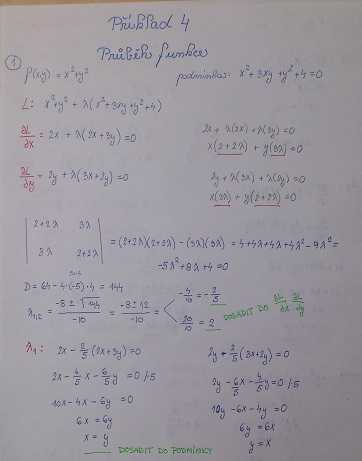 Příklad 4
Průběh funkce
1
f(x,y) = x²+y²
podmínka: x²+3xy+y²+4=0
L: x²+y² + λ(x²+3xy+y²+4)
∂L/∂x = 2x + λ(2x+3y) = 0
2x + λ(2x) + λ(3y) = 0
x(2+2λ) + y(3λ) = 0
∂L/∂y = 2y + λ(3x+2y) = 0
2y + λ(3x) + λ(2y) = 0
x(3λ) + y(2+2λ) = 0
| 2+2λ 3λ |
| 3λ 2+2λ | = (2+2λ)(2+2λ) - (3λ)(3λ) = 4+4λ+4λ+4λ²-9λ² =
-5λ²+8λ+4=0
D = 64-4·(-5)·4 = 144
λ1,2 = (-8 ± √144)/-10 = (-8 ± 12)/-10 =
-4/10 = -2/5
20/10 = 2
DOSADIT DO ∂L/∂x ∂L/∂y
λ1: 2x - 2/5(2x+3y)=0
2x - 4/5x - 6/5y = 0 /·5
10x - 4x - 6y = 0
6x = 6y
x = y
2y - 2/5(3x+2y)=0
2y - 6/5x - 4/5y = 0 /·5
10y - 6x - 4y = 0
6y = 6x
y = x
DOSADIT DO PODMÍNKY